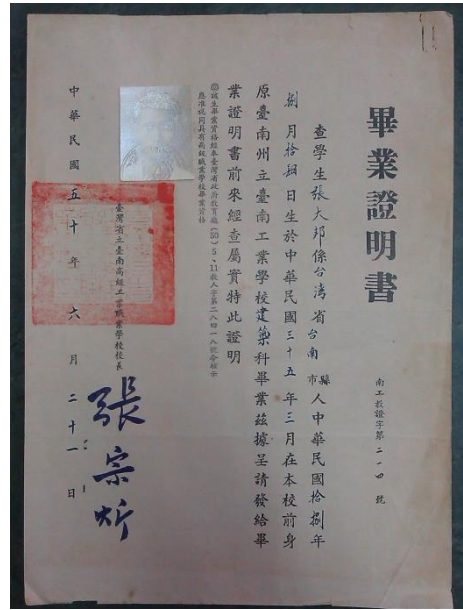 畢業證明書
南工教證字第二一四號
查學生張大邦係台灣省台南縣市人中華民國拾捌年
捌月拾捌日生於中華民國三十五年三月在本校前身
原臺南州立臺南工業學校建築科畢業茲據呈請發給畢
業證明書前來經查屬實特此證明
該生畢業資格經奉臺灣省政府教育廳(50)5、11教人字第二八四一八號令核示
應准認同具有高級職業學校畢業資格
臺灣省立臺南高級工業職業學校校長
張宗炘
中華民國五十年六月二十一日